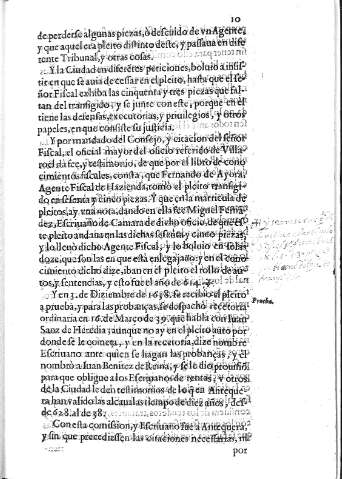 10
de perderse algunas piezas, ò descuido de vn Agente,
y que aquel era pleito distinto deste, y passaua en dife
rente Tribunal, y otras cosas.
Y la Ciudad en diferẽtes peticiones, boluio a insis-
tir en que se auia de cessar en el pleito, hasta que el se-
ñor Fiscal exhiba las cinquenta y tres piezas que fal-
tan del transigido, y se junte con este, porque en el
tiene las defensas, executorias, y priuilegios, y otros
papeles, en que consiste su justicia.
Y por mandado del Consejo, y citacion del señor
Fiscal, el oficial mayor del oficio referido de Villa-
roel da fee, y testimonio, de que por el libro de cono
cimientos fiscales, consta, que Fernando de Ayora,
Agente Fiscal de Hazienda, tomò el pleito transigi-
do en sesenta y cinco piezas. Y que en la matricula de
pleitos, ay vna nota, dando en ella fee Miguel Fernã
dez, Escriuano de Camara de dicho oficio, de que es-
te pleito andaua en las dichas sesenta y cinco piezas,
y lo lleuò dicho Agente Fiscal, y lo boluio en solas
doze, que son las en que està enlegajado; y en el cono
cimiento dicho dize, iban en el pleito el rollo de au-
tos, y sentencias, y esto fue el año de 614.
Y en 3. de Diziembre de 1638. se recibio el pleito
a prueba, y para las probanças, se despachò recetoria
Prueba.
ordinaria en 16. de Março de 39. que habla con Iuan
Sanz de Heredia; aunque no ay en el pleito auto por
donde se le cometa, y en la recetoria, dize nombre
Escriuano ante quien se hagan las probanças, y el
nombrò a Iuan Benitez de Reina, y se le dio prouisiõ
para que obligue a los Escriuanos de rentas, y otros
de la Ciudad le den testimonios de lo q̃ en Anteque-
ra han valido las alcaualas tiempo de diez años, des-
de 628. al de 38.
Con esta comission, y Escriuano fue a Antequera,
y sin que precediessen las citaciones necessarias, ni
por